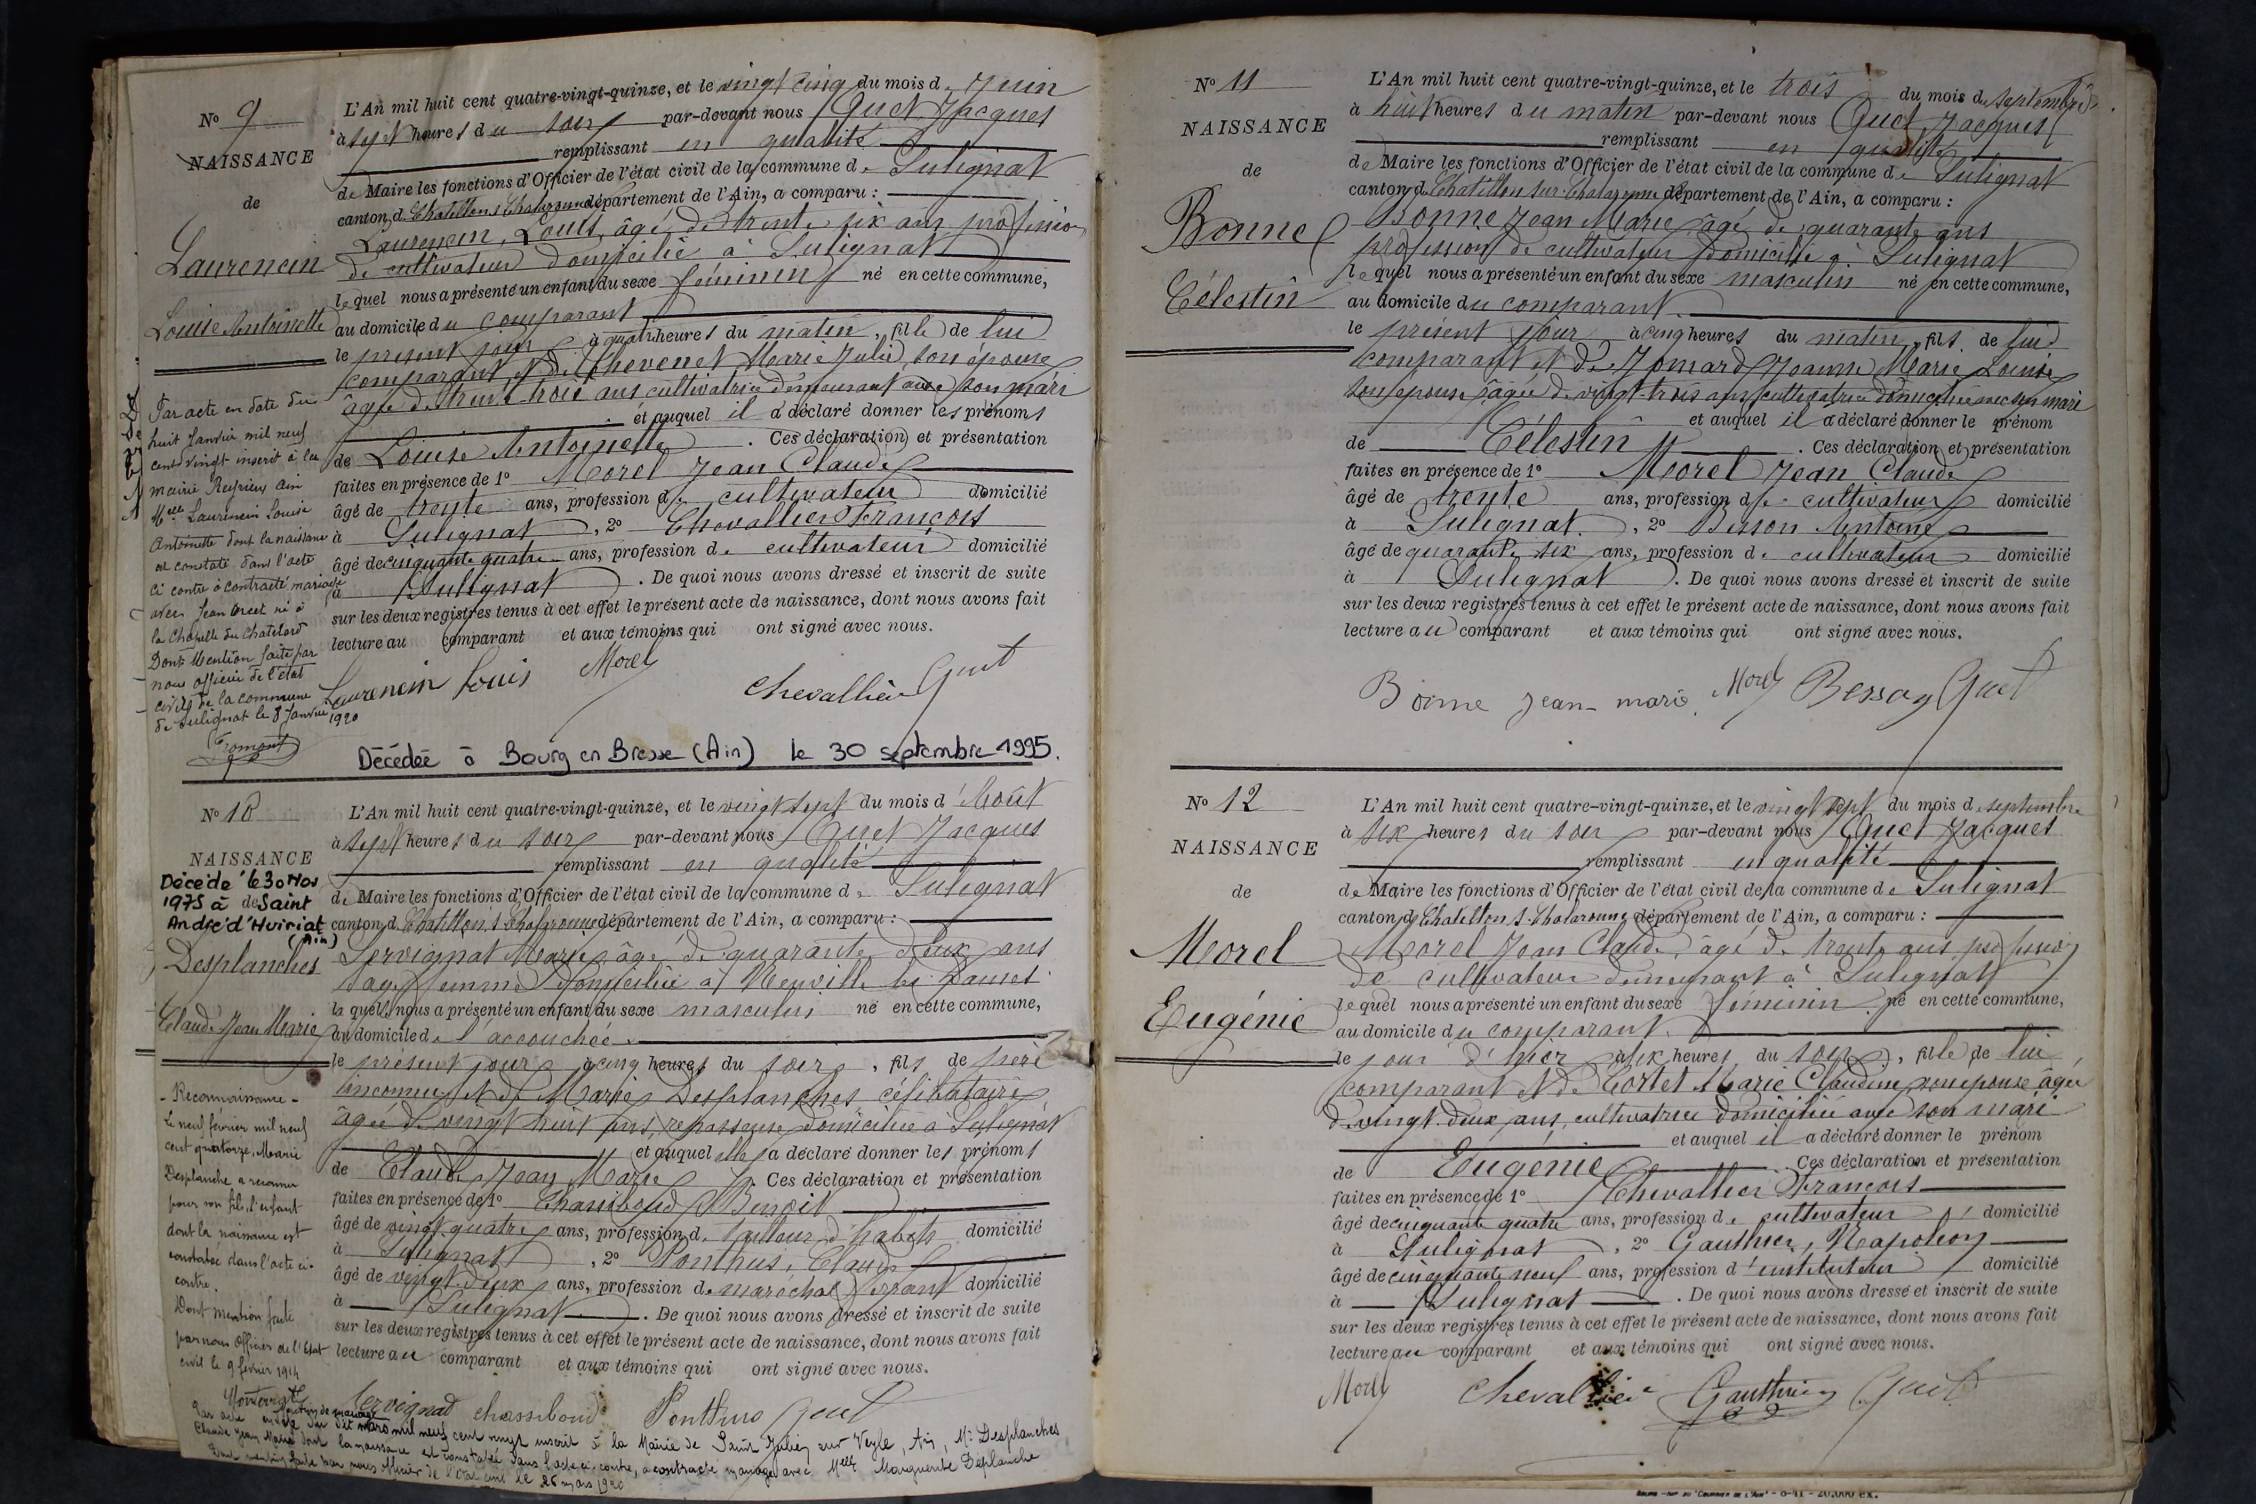 N° 9
NAISSANCE
de
Laurencin
Louise Antoinette
L'An mil huit cent quatre-vingt-quinze, et le vingt cinq du mois de Juin
à sept heures du soir par-devant nous Quet Jacques
remplissant en qualité
de Maire les fonctions d'Officier de l'état civil de la commune de Sulignat
canton de Chatillon s Chalaronne département de l'Ain, a comparu :
Laurencin Louis, âgé de trente six ans profession
de cultivateur domicilié à Sulignat
lequel nous a présenté un enfant du sexe féminin né en cette commune,
au domicile du comparant
le présent jour à quatre heures du matin, fille de lui
comparant et de Chevenet Marie Julie son épouse
âgée de trente trois ans cultivatrice demeurant avec son mari
et auquel il a déclaré donner les prénoms
de Louise Antoinette. Ces déclaration et présentation
faites en présence de 1° Morel Jean Claude
âgé de trente ans, profession de cultivateur domicilié
à Sulignat, 2° Chevallier François
âgé de cinquante quatre ans, profession de cultivateur domicilié
à Sulignat. De quoi nous avons dressé et inscrit de suite
sur les deux registres tenus à cet effet le présent acte de naissance, dont nous avons fait
lecture au comparant et aux témoins qui ont signé avec nous.
Laurencin Louis Morel Chevallier Quet
Par acte en date du
huit Janvier mil neuf
cent vingt inscrit à la
mairie Reyrieux Ain
Melle Laurencin Louise
Antoinette dont la naissance
est constaté dans l'acte
ci contre à contracté mariage
avec Jean né à
la Chapelle du Chatelard
Dont Mention faite par
nous officier de l'état
civil de la commune
de Sulignat le 8 Janvier
1920
Fromont
Décédée à Bourg en Bresse (Ain) le 30 septembre 1995.
N° 10
NAISSANCE
de
Décédé le 30 Nov
1975 à Saint
André d'Huiriat
(Ain)
Desplanches
Claude Jean Marie
L'An mil huit cent quatre-vingt-quinze, et le vingt sept du mois d'Août
à sept heures du soir par-devant nous Quet Jacques
remplissant en qualité
de Maire les fonctions d'Officier de l'état civil de la commune de Sulignat
canton de Chatillon s Chalaronne département de l'Ain, a comparu :
Servignat Marie âgée de quarante deux ans
sage femme domiciliée à Neuville les Dames
laquelle nous a présenté un enfant du sexe masculin né en cette commune,
au domicile de l'accouchée
le présent jour à cinq heures du soir, fils de père
inconnu et de Marie Desplanches célibataire
âgée de vingt huit ans, repasseuse domiciliée à Sulignat
et auquel elle a déclaré donner les prénoms
de Claude Jean Marie. Ces déclaration et présentation
faites en présence de 1° Benoit
âgé de vingt quatre ans, profession de tailleur d'habits domicilié
à Sulignat, 2° Ponthus, Claude
âgé de vingt deux ans, profession de maréchal ferrant domicilié
à Sulignat. De quoi nous avons dressé et inscrit de suite
sur les deux registres tenus à cet effet le présent acte de naissance, dont nous avons fait
lecture au comparant et aux témoins qui ont signé avec nous.
Servignat Ponthus Quet
- Reconnaissance -
Le neuf février mil neuf
cent quatorze, Marie
Desplanche a reconnu
pour son fils, l'enfant
dont la naissance est
constatée dans l'acte ci-
contre.
Dont mention faite
par nous Officier de l'Etat
civil le 9 février 1914
Mention de mariage
Par acte en date du dix mars mil neuf cent vingt inscrit à la Mairie de Saint Julien sur Veyle, Ain, Mr Desplanches
Claude Jean Marie dont la naissance est constatée dans l'acte ci-contre, a contracté mariage avec Melle Marguerite Desplanche
Dont mention faite par nous Officier de l'Etat civil le 26 mars 1920
N° 11
NAISSANCE
de
Bonne
Célestin
L'An mil huit cent quatre-vingt-quinze, et le trois du mois de septembre
à huit heures du matin par-devant nous Quet Jacques
remplissant en qualité
de Maire les fonctions d'Officier de l'état civil de la commune de Sulignat
canton de Chatillon sur Chalaronne département de l'Ain, a comparu :
Bonne Jean Marie âgé de quarante ans
profession de cultivateur domicilié à Sulignat
lequel nous a présenté un enfant du sexe masculin né en cette commune,
au domicile du comparant
le présent jour à cinq heures du matin, fils de lui
comparant et de Jomard Jeanne Marie Louise
son épouse âgée de vingt trois ans cultivatrice domiciliée avec son mari
et auquel il a déclaré donner le prénom
de Célestin. Ces déclaration et présentation
faites en présence de 1° Morel Jean Claude
âgé de trente ans, profession de cultivateur domicilié
à Sulignat, 2° Besson Antoine
âgé de quarante six ans, profession de cultivateur domicilié
à Sulignat. De quoi nous avons dressé et inscrit de suite
sur les deux registres tenus à cet effet le présent acte de naissance, dont nous avons fait
lecture au comparant et aux témoins qui ont signé avec nous.
Bonne Jean-marie Morel Besson Quet
N° 12
NAISSANCE
de
Morel
Eugénie
L'An mil huit cent quatre-vingt-quinze, et le vingt sept du mois de septembre
à six heures du soir par-devant nous Quet Jacques
remplissant en qualité
de Maire les fonctions d'Officier de l'état civil de la commune de Sulignat
canton de Chatillon s. Chalaronne département de l'Ain, a comparu :
Morel Jean Claude, âgé de trente ans profession
de cultivateur demeurant à Sulignat
lequel nous a présenté un enfant du sexe féminin né en cette commune,
au domicile du comparant
le jour d'hier à six heures du soir, fille de lui
comparant et de Cortet Marie Claudine son épouse âgée
de vingt deux ans, cultivatrice domiciliée avec son mari
et auquel il a déclaré donner le prénom
de Eugénie. Ces déclaration et présentation
faites en présence de 1° Chevallier François
âgé de cinquante quatre ans, profession de cultivateur domicilié
à Sulignat, 2° Gauthier, Napoléon
âgé de cinquante neuf ans, profession d'instituteur domicilié
à Sulignat. De quoi nous avons dressé et inscrit de suite
sur les deux registres tenus à cet effet le présent acte de naissance, dont nous avons fait
lecture au comparant et aux témoins qui ont signé avec nous.
Morel Chevallier Gauthier Quet